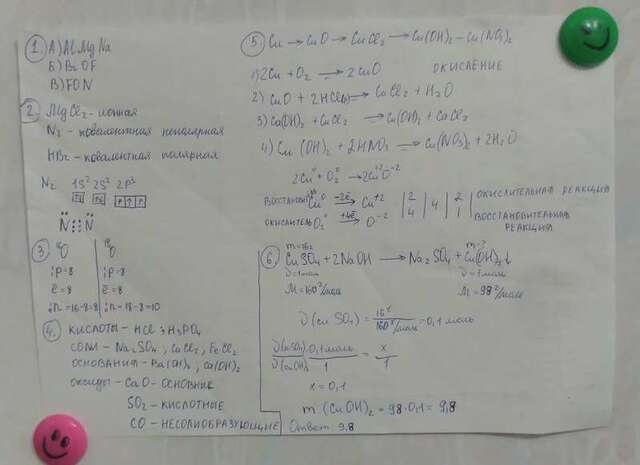 1. А) Al Mg Na
Б) Br O F
В) F O N
2. MgCl2 - ионная
N2 - ковалентная неполярная
HBr - ковалентная полярная
N2 1S² 2S² 2P³
↑↓ ↑↓ ↑ ↑ ↑
N̈⋮⋮N̈
3. ¹⁶O ¹⁸O
p=8 p=8
ē=8 ē=8
n=16-8=8 n=18-8=10
4. Кислоты - HCl, H3PO4
Соли - Na2SO4, CuCl2, FeCl2
Основания - Ba(OH)2, Ca(OH)2
Оксиды - CaO - основние
SO2 - кислотные
CO - несолиобразующие
5. Cu → CuO → CuCl2 → Cu(OH)2 - Cu(NO3)2
1) 2Cu + O2 → 2CuO окисление
2) CuO + 2HCl = CuCl2 + H2O
3) Ca(OH)2 + CuCl2 → Cu(OH)2 + CaCl2
4) Cu(OH)2 + 2HNO3 → Cu(NO3)2 + 2H2O
2Cu⁰ + O2⁰ → 2Cu⁺²O⁻²
восстанов. Cu⁰ -2ē → Cu+2 | 2 | 4 | 2 | окислительная реакция
окислитель O2⁰ +4ē → O⁻² | 4 | 1 | восстановительная реакция
6. m=16г m-?
CuSO4 + 2NaOH → Na2SO4 + Cu(OH)2↓
ν=1моль ν=1моль
M=160г/моль M=98г/моль
ν(CuSO4) = 16г/160г/моль = 0,1 моль
ν(CuSO4) 0,1моль = x
ν(CuOH)2 1 1
x=0,1
m (CuOH)2 = 98·0,1 = 9,8
Ответ: 9.8